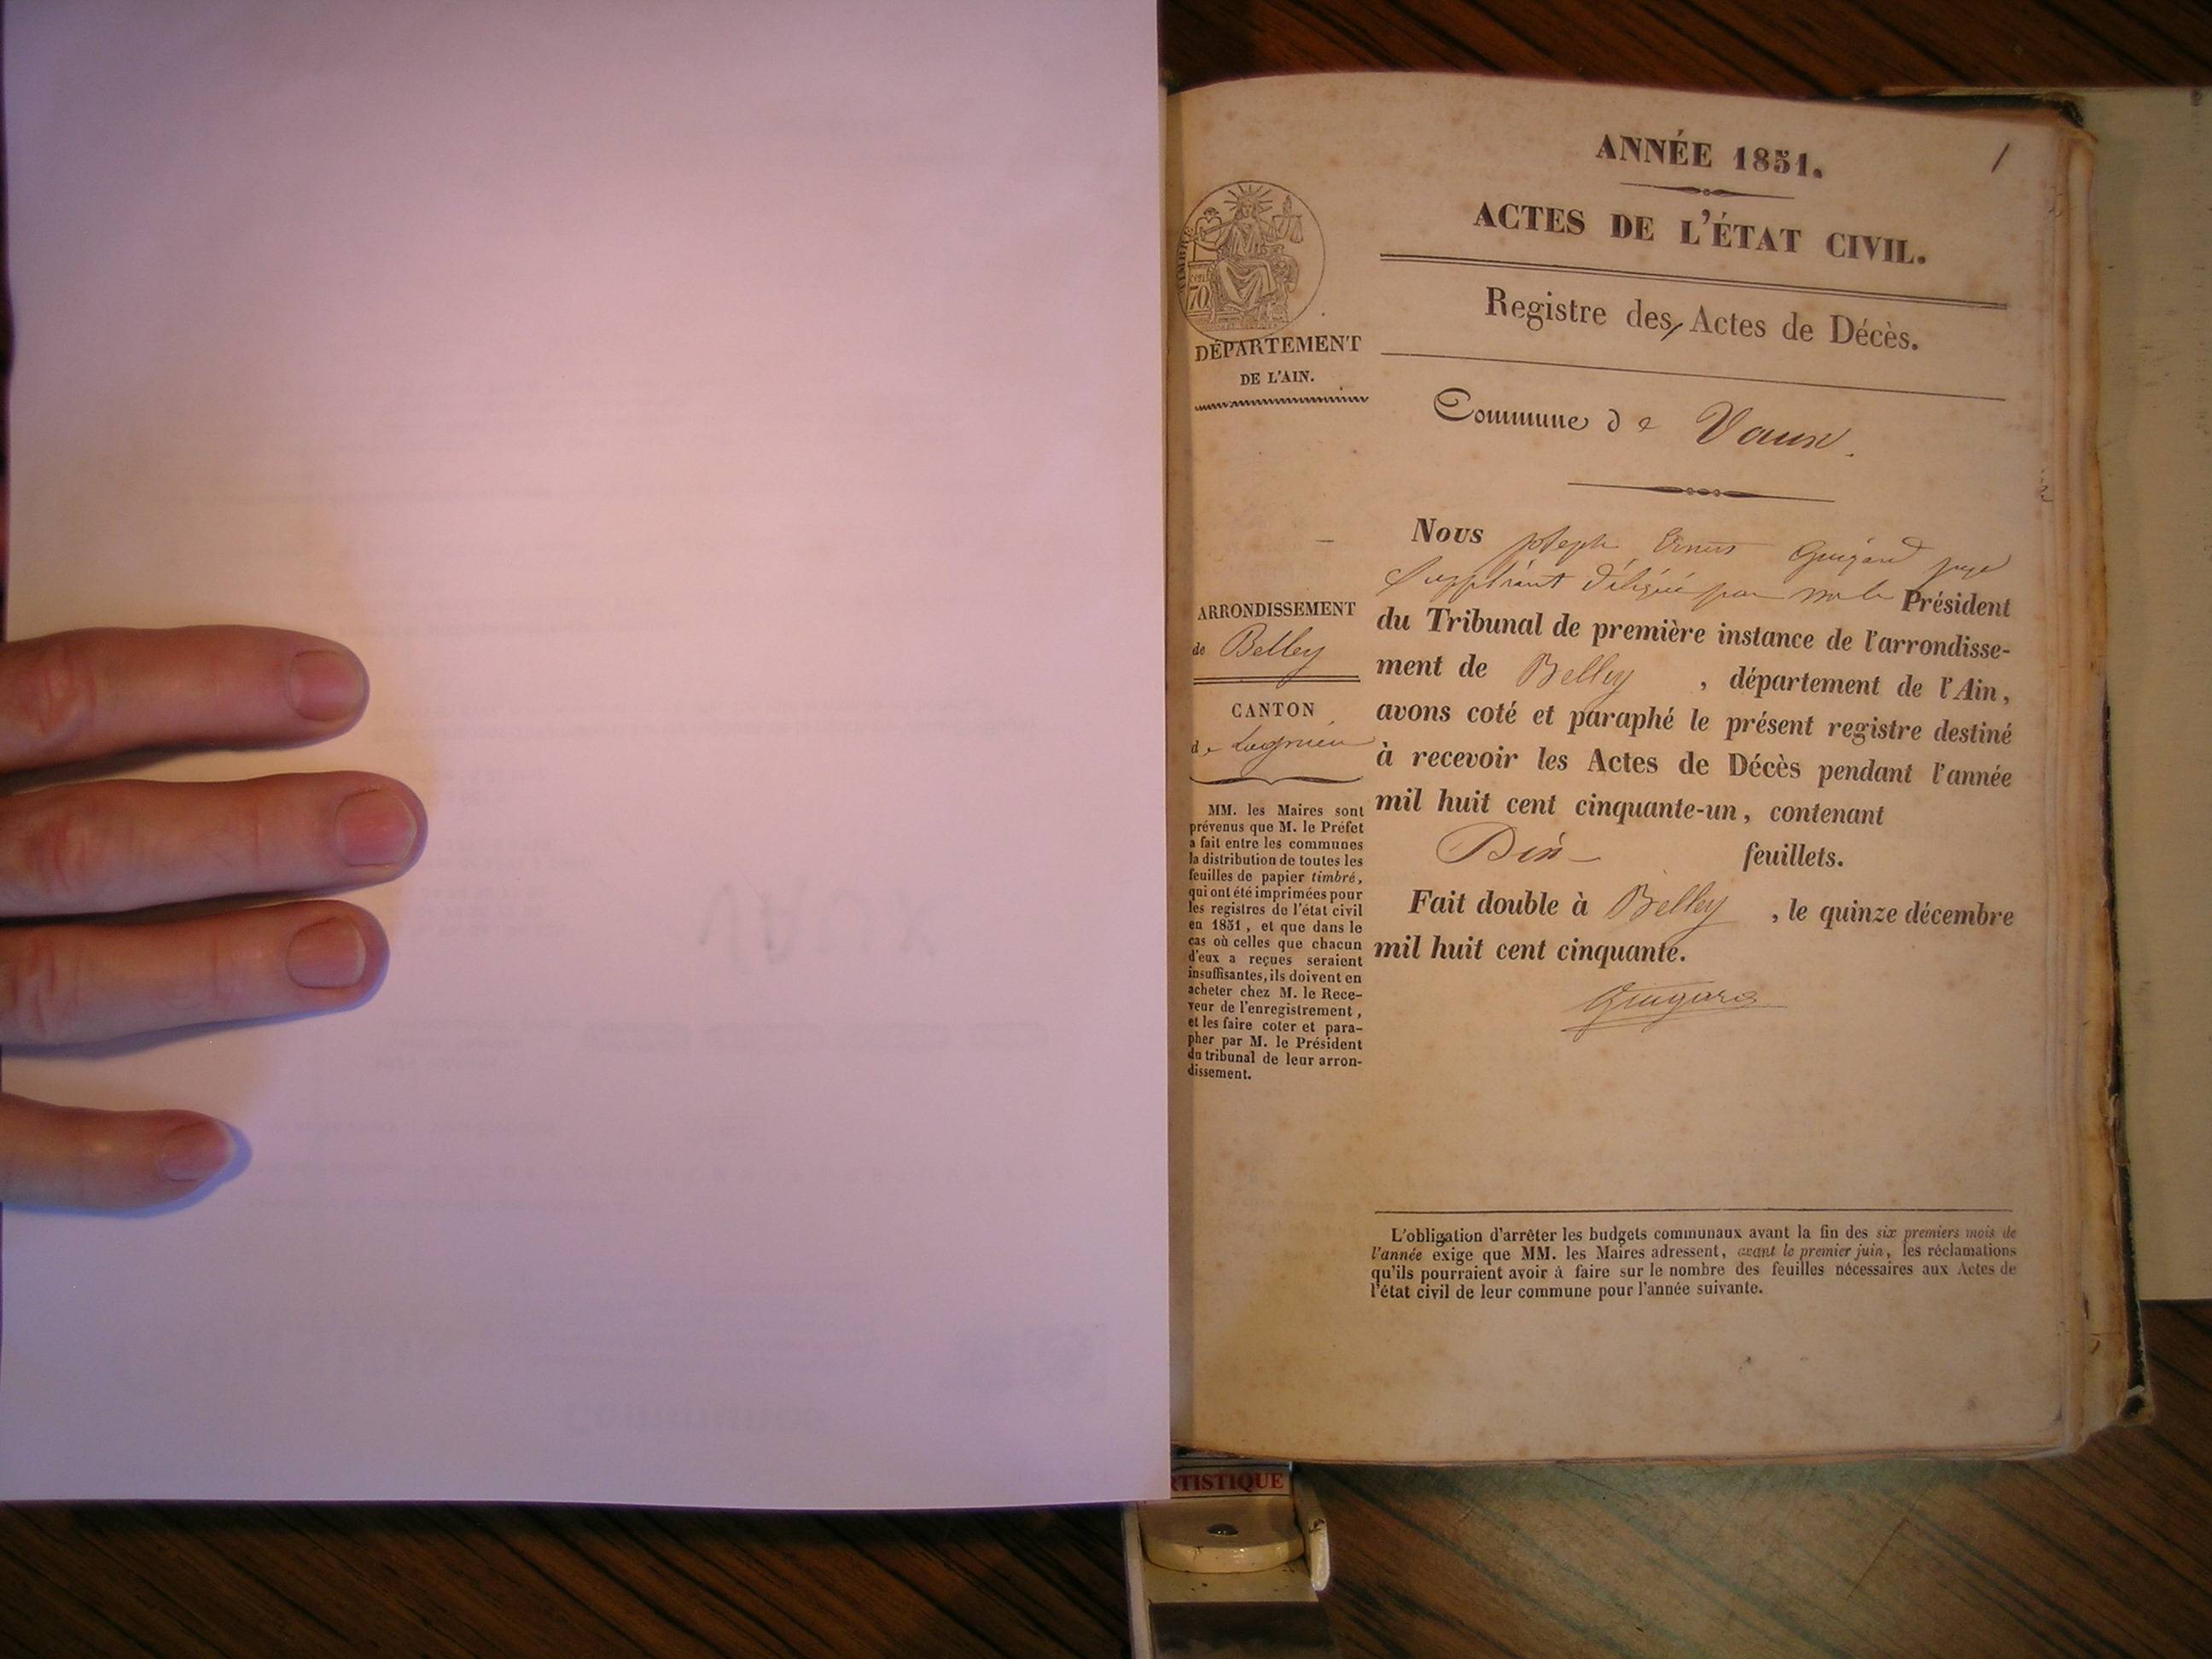 ANNÉE 1851.
/
ACTES DE L'ÉTAT CIVIL.
Registre des Actes de Décès.
TIMBRE
70
DÉPARTEMENT
DE L'AIN.
Commune de Vaux.
Nous Joseph Guigard juge
Suppléant délégué par Mr le Président
du Tribunal de première instance de l'arrondisse-
ment de Belley, département de l'Ain,
avons coté et paraphé le présent registre destiné
à recevoir les Actes de Décès pendant l'année
mil huit cent cinquante-un, contenant
Dix feuillets.
Fait double à Belley, le quinze décembre
mil huit cent cinquante.
Guigard
ARRONDISSEMENT
de Belley
CANTON
de Lagnieu
MM. les Maires sont
prévenus que M. le Préfet
a fait entre les communes
la distribution de toutes les
feuilles de papier timbré,
qui ont été imprimées pour
les registres de l'état civil
en 1851, et que dans le
cas où celles que chacun
d'eux a reçues seraient
insuffisantes, ils doivent en
acheter chez M. le Rece-
veur de l'enregistrement,
et les faire coter et para-
pher par M. le Président
du tribunal de leur arron-
dissement.
L'obligation d'arrêter les budgets communaux avant la fin des six premiers mois de
l'année exige que MM. les Maires adressent, avant le premier juin, les réclamations
qu'ils pourraient avoir à faire sur le nombre des feuilles nécessaires aux Actes de
l'état civil de leur commune pour l'année suivante.
RTISTIQUE